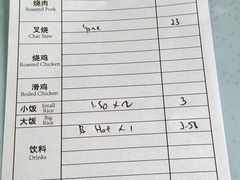 烧肉
Roasted Pork
叉烧 23
Char Siew
烧鸡
Roasted Chicken
滑鸡
Boiled Chicken
小饭 Small Rice 1.50 x 2 3
大饭 Big Rice
饮料 B Hot x 1 3.50
Drinks